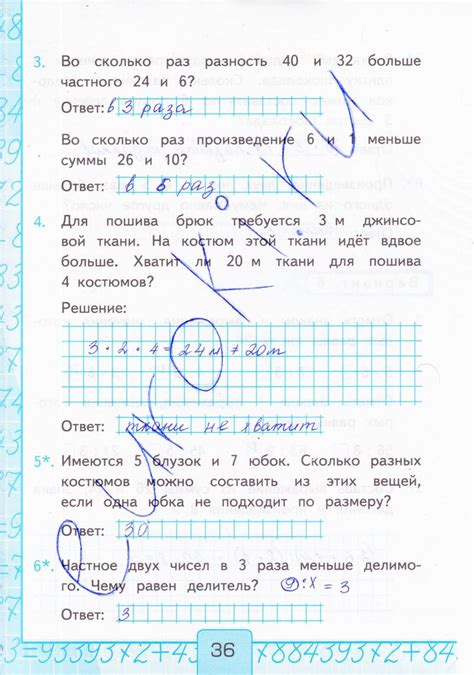 3. Во сколько раз разность 40 и 32 больше
частного 24 и 6?
Ответ: в 3 раза
Во сколько раз произведение 6 и 1 меньше
суммы 26 и 10?
Ответ: в 6 раз
4. Для пошива брюк требуется 3 м джинсо-
вой ткани. На костюм этой ткани идёт вдвое
больше. Хватит ли 20 м ткани для пошива
4 костюмов?
Решение:
3 · 2 · 4 = 24 м ≠ 20 м
Ответ: ткани не хватит
5*. Имеются 5 блузок и 7 юбок. Сколько разных
костюмов можно составить из этих вещей,
если одна юбка не подходит по размеру?
Ответ: 30
6*. Частное двух чисел в 3 раза меньше делимо-
го. Чему равен делитель? 9:x = 3
Ответ: 3
36